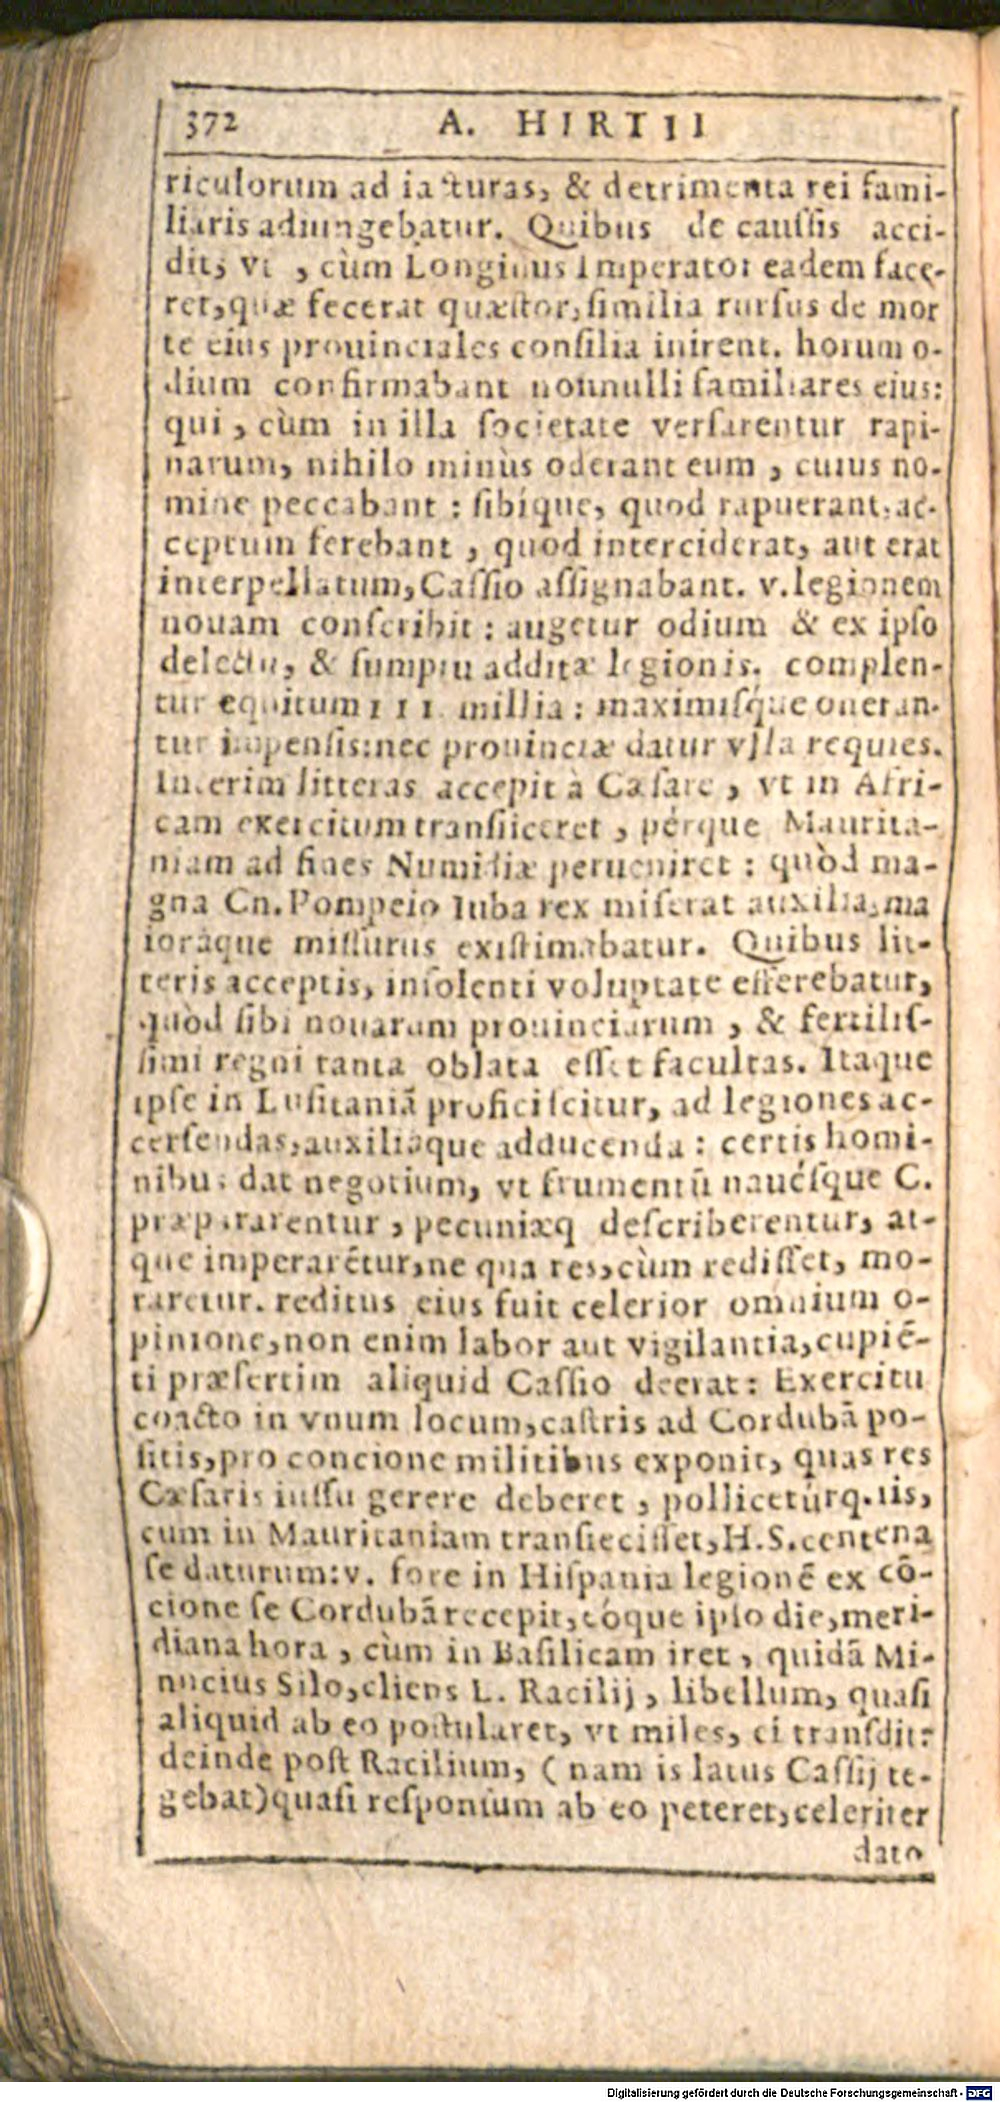 372 A. HIRTII
riculorum ad iacturas, & detrimenta rei fami-
liaris adiungebatur. Quibus de caussis acci-
dit, vt , cùm Longinus Imperator eadem face-
ret,quæ fecerat quæstor,similia rursus de mor
te eius prouinciales consilia inirent. horum o-
dium confirmabant nonnulli familiares eius:
qui , cùm in illa societate versarentur rapi-
narum, nihilo minùs oderant eum , cuius no-
mine peccabant : sibíque, quod rapuerant, ac-
ceptum ferebant , quod interciderat, aut erat
interpellatum,Cassio assignabant. v.legionem
nouam conscribit : augetur odium & ex ipso
delectu, & sumptu additæ legionis. complen-
tur equitum III millia : maximisque oneran-
tur impensis:nec prouinciæ datur vlla requies.
Interim litteras accepit à Cæsare , vt in Afri-
cam exercitum transiiceret , pérque Maurita-
niam ad fines Numidiæ perueniret : quòd ma-
gna Cn.Pompeio Iuba rex miserat auxilia,ma
ioráque missurus existimabatur. Quibus lit-
teris acceptis, insolenti voluptate efferebatur,
quòd sibi nouarum prouinciarum , & fertilis-
simi regni tanta oblata esset facultas. Itaque
ipse in Lusitaniã proficiscitur, ad legiones ac-
cersendas,auxiliáque adducenda : certis homi-
nibus dat negotium, vt frumentũ nauésque C.
præpararentur , pecuniæq describerentur, at-
que imperarẽtur,ne qua res,cùm redisset, mo-
raretur. reditus eius fuit celerior omnium o-
pinione,non enim labor aut vigilantia,cupiẽ-
ti præsertim aliquid Cassio deerat: Exercitu
coacto in vnum locum,castris ad Cordubã po-
sitis,pro concione militibus exponit, quas res
Cæsaris iussu gerere deberet , polliceturq.iis,
cum in Mauritaniam transiecisset,H.S.centena
se daturum:v. fore in Hispania legionẽ ex cõ-
cione se Cordubã recepit,eóque ipso die,meri-
diana hora , cùm in Basilicam iret , quidã Mi-
nucius Silo,cliens L. Racilij , libellum, quasi
aliquid ab eo postularet, vt miles, ei transdit:
deinde post Racilium, ( nam is latus Cassij te-
gebat)quasi responsum ab eo peteret,celeriter
dato
Digitalisierung gefördert durch die Deutsche Forschungsgemeinschaft - DFG